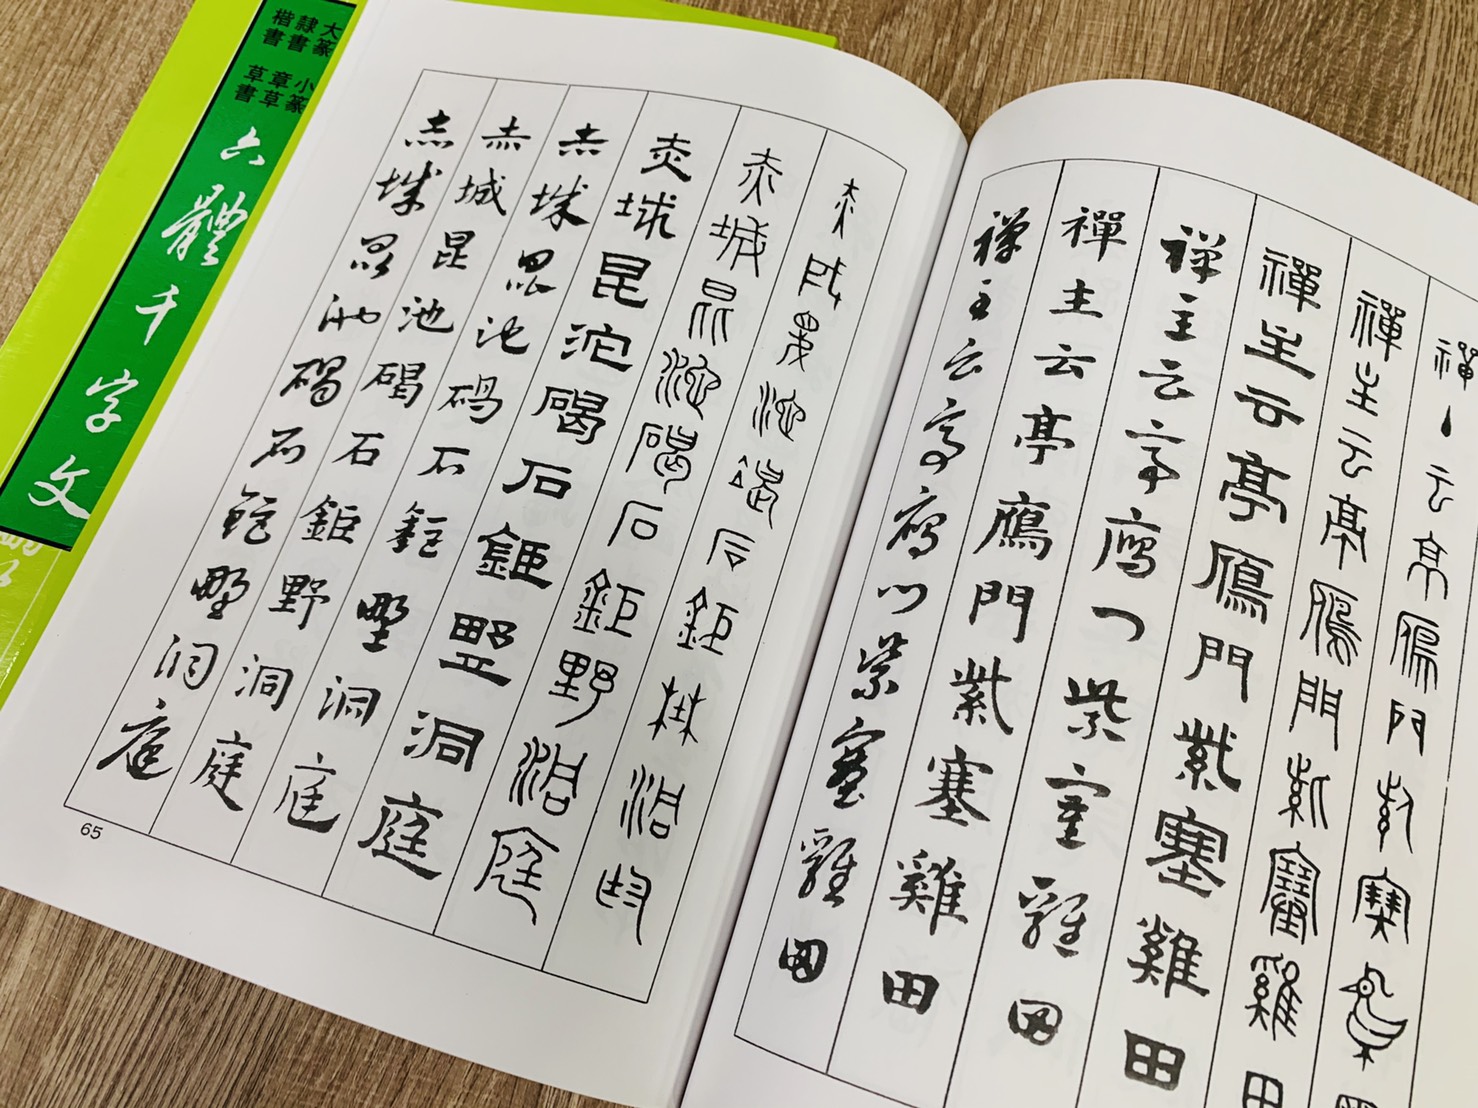 大篆 小篆
隸書 章草
楷書 草書
六體千字文
禪主云亭鴈門紫塞雞田
禪主云亭鴈門紫塞雞田
禪主云亭鴈門紫塞雞田
禪主云亭鴈門紫塞雞田
禪主云亭鴈門紫塞雞田
禪主云亭鴈門紫塞雞田
赤城昆池碣石鉅野洞庭
赤城昆池碣石鉅野洞庭
赤城昆池碣石鉅野洞庭
赤城昆池碣石鉅野洞庭
赤城昆池碣石鉅野洞庭
赤城昆池碣石鉅野洞庭
65